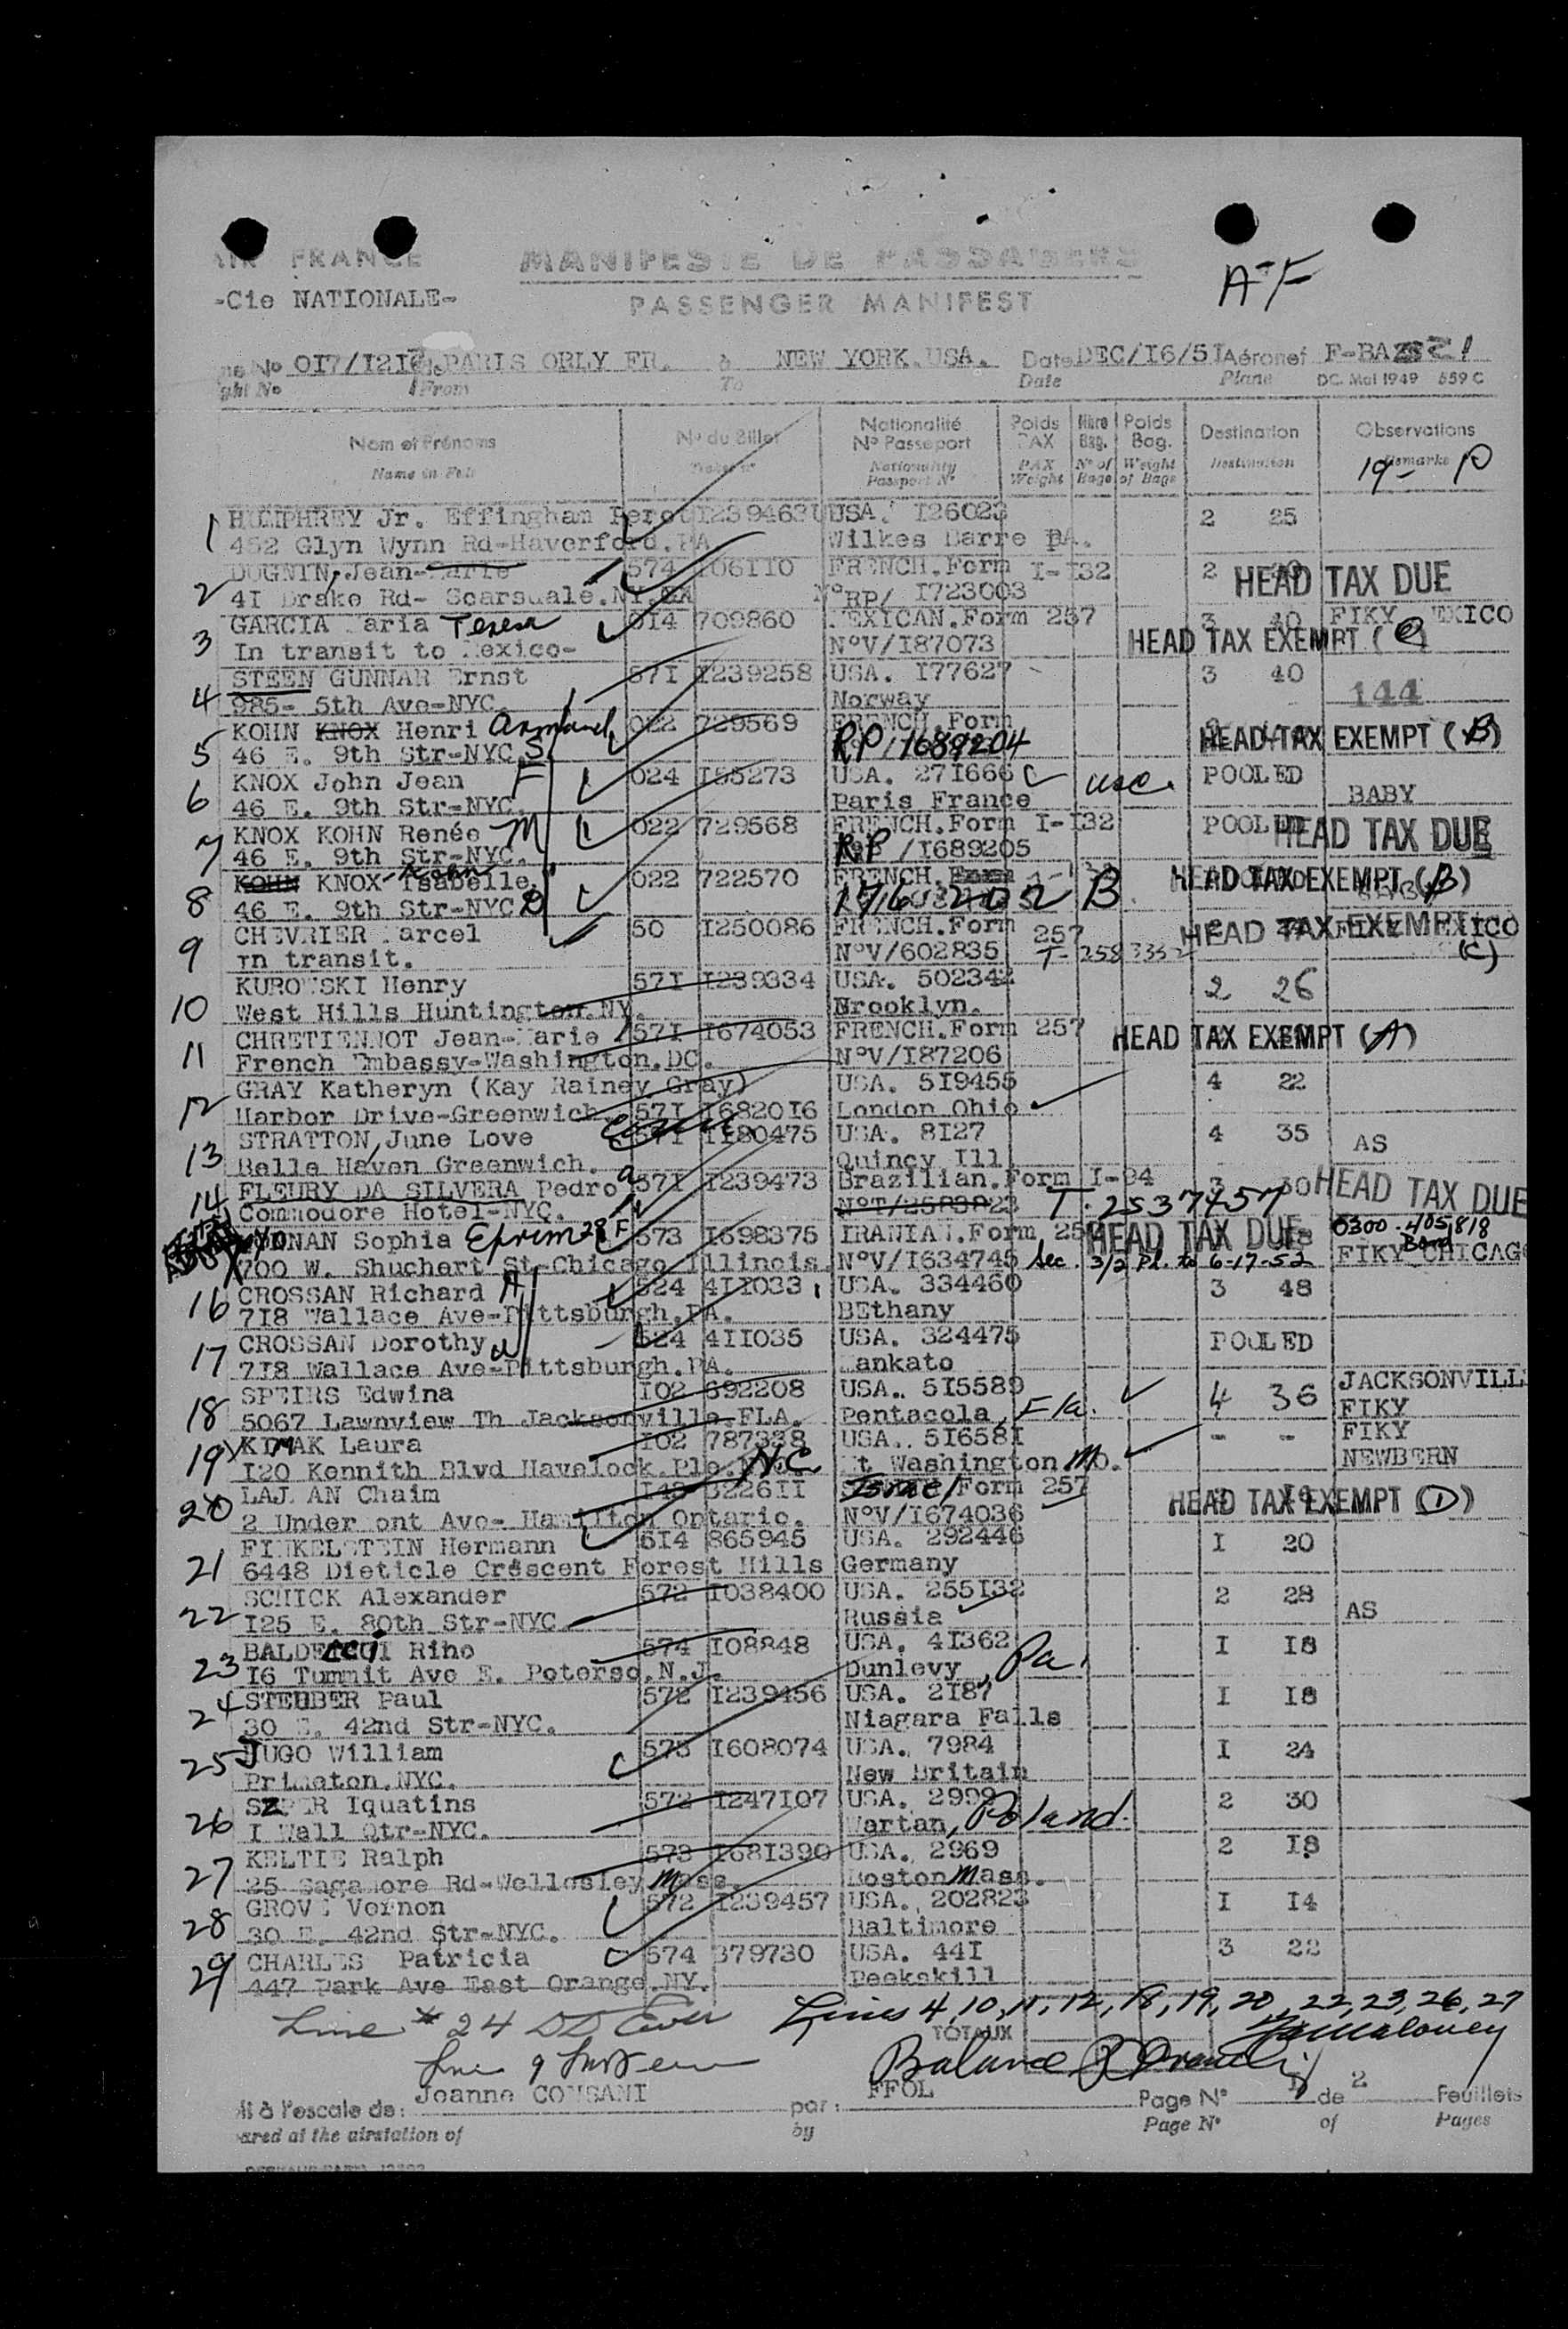 AIR FRANCE MANIFESTE DE PASSAGERS
A-F
-Cie NATIONALE- PASSENGER MANIFEST
No OI7/I2I6 de PARIS ORLY FR. à NEW YORK.USA. Date DEC/I6/5I Aéronef F-BAZ 21
ght No From To Date Plane DC. Mai 1949 559 C
Nom et Prénoms N° du Billet Nationalité N° Passeport Poids PAX Nbre Bag. Poids Bag. Destination Observations
Name in Full Ticket n° Nationality Passport N° PAX Weight N° of Bags Weight of Bags Destination Remarks
19- P
1 HUMPHREY Jr. Effingham Perot I239463 USA. I26023 2 25
452 Glyn Wynn Rd-Haverford.PA Wilkes Barre PA.
2 DUGNIN, Jean-Marie 574 I06II0 FRENCH.Form I-I32 2 HEAD TAX DUE
4I Drake Rd- Scarsdale.NY. N°RP/ I723003
3 GARCIA Maria Teresa 0I4 709860 MEXICAN.Form 257 3 40 FIKY MEXICO
In transit to Mexico- N°V/I87073 HEAD TAX EXEMPT (C)
4 STEEN GUNNAR Ernst 57I I239258 USA. I77627 3 40
985- 5th Ave-NYC. Norway 144
5 KOHN KNOX Henri Armand 022 729569 FRENCH.Form
46 E. 9th Str-NYC. S RP/1689204 HEAD TAX EXEMPT (B)
6 KNOX John Jean F 024 I55273 USA. 27I666 usc. POOLED
46 E. 9th Str-NYC. Paris France BABY
7 KNOX KOHN Renée M 022 729568 FRENCH.Form I-I32 POOLED HEAD TAX DUE
46 E. 9th Str-NYC. RP /I689205
8 KOHN KNOX-Kohn Isabelle 022 722570 FRENCH. HEAD TAX EXEMPT (B)
46 E. 9th Str-NYC D B
9 CHEVRIER Marcel 50 I250086 FRENCH.Form 257 HEAD TAX EXEMPT
In transit. N°V/602835 T-2583352 (C)
10 KUROWSKI Henry 57I I239334 USA. 502342 2 26
West Hills Huntington.NY. Brooklyn.
11 CHRETIENNOT Jean-Marie 57I I674053 FRENCH.Form 257 HEAD TAX EXEMPT (A)
French Embassy-Washington.DC. N°V/I87206
12 GRAY Katheryn (Kay Rainey Gray) USA. 5I9455 4 22
Harbor Drive-Greenwich. 57I I6820I6 London Ohio
13 STRATTON, June Love 57I II80475 USA. 8I27 4 35
Belle Haven Greenwich. Quincy Ill AS
14 FLEURY DA SILVERA Pedro 57I I239473 Brazilian.Form I-94 3 30 HEAD TAX DUE
Commodore Hotel-NYC. T-2537457
YONAN Sophia Eprim 28 F 573 I698375 IRANIAN.Form 257 HEAD TAX DUE 0300-405818
700 W. Shuchert St-Chicago Illinois. N°V/I634745 Sec. 3/2 Pl. to 6-17-52 Bond FIKY CHICAGO
16 CROSSAN Richard H 524 4II033 USA. 334460 3 48
7I8 Wallace Ave-Pittsburgh.PA. BEthany
17 CROSSAN Dorothy W 524 4II035 USA. 324475 POOLED
7I8 Wallace Ave-Pittsburgh.PA. Mankato
18 SPEIRS Edwina I02 692208 USA. 5I5589 4 36 JACKSONVILLE
5067 Lawnview Th Jacksonville.FLA. Pentacola, Fla. FIKY
19 KIMAK Laura I02 787338 USA. 5I658I - - FIKY
I20 Kennith Blvd Havelock. N.C. Mt Washington MO. NEWBERN
20 LAJMAN Chaim I43 3226II Israel Form 257 HEAD TAX EXEMPT (D)
2 Undermont Ave- Hamilton Ontario. N°V/I674036
21 FINKELSTEIN Hermann 5I4 865945 USA. 292446 I 20
6448 Dieticle Crescent Forest Hills Germany
22 SCHICK Alexander 572 I038400 USA. 255I32 2 28
I25 E. 80th Str-NYC. Russia AS
23 BALDEACCI Riho 574 I08848 USA. 4I362 I I8
I6 Tummit Ave E. Peterso.N.J. Dunlevy, Pa.
24 STEUBER Paul 572 I239456 USA. 2I87 I I8
30 E. 42nd Str-NYC. Niagara Falls
25 JUGO William 573 I608074 USA. 7984 I 24
Princton.NYC. New Britain
26 SZPER Iquatins 572 I247I07 USA. 2999 2 30
I Wall Qtr-NYC. Wartan, Poland.
27 KELTIE Ralph 573 I68I390 USA. 2969 2 I8
25 Sagamore Rd-Wellesley Mass. Boston Mass.
28 GROVE Vernon 572 I239457 USA. 202823 I I4
30 E. 42nd Str-NYC. Baltimore
29 CHARLES Patricia 574 379730 USA. 44I 3 22
447 Park Ave East Orange.NY. Peekskill
Line # 24 Lines 4, 10, 11, 12, 18, 19, 20, 22, 23, 26, 27
TOTAUX
Line 9 Balance
Joanne CONSANI FFOL
à l'escale de: par: Page N° 1 de 2 Feuillets
ared at the airstation of by Page N° of Pages